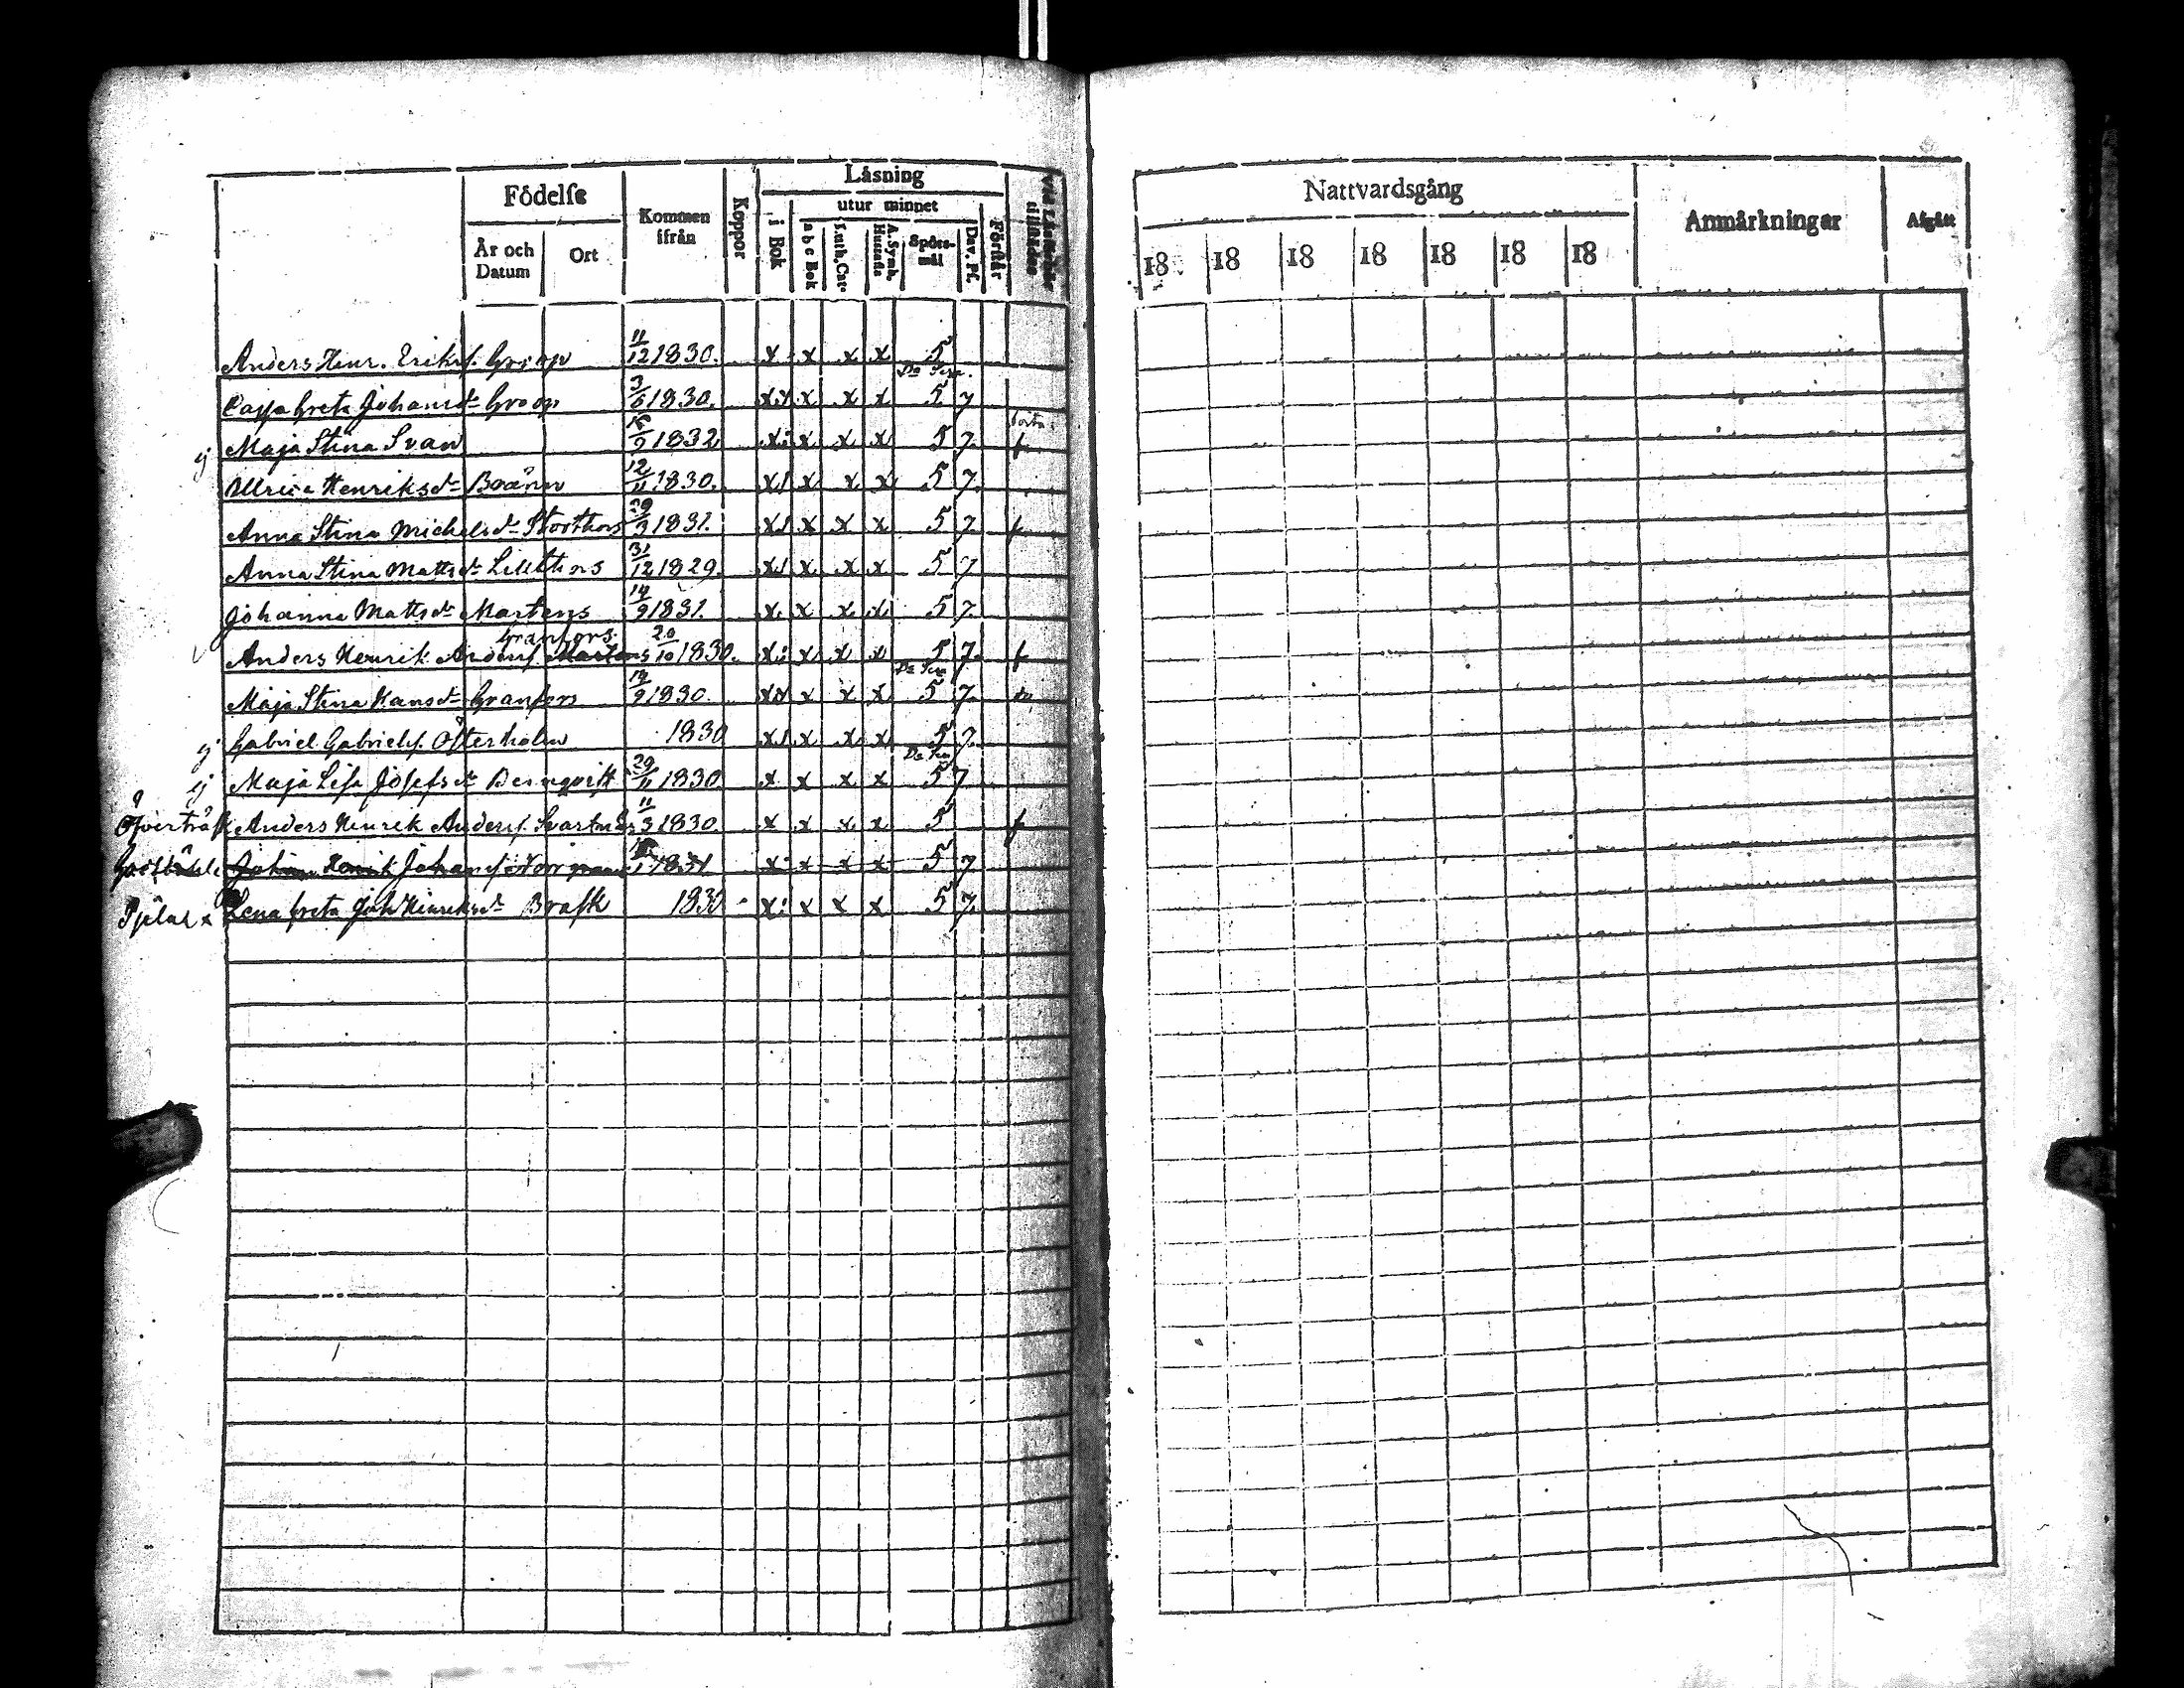 Födelse
Kommen ifrån
Koppor
Läsning
utur minnet
År och Datum
Ort
i Bok
a b c Bok
Luth. Cat.
A. Symb. Hustafla
Spörsmål
Dav. Ps.
Förstår
Nattvardsgång
Anmärkningar
Afgått
18 18 18 18 18 18 18
Anders Henr. Eriks. Groop 11/12 1830. x x x x 5
Cajsa Greta Johansdr Groop 3/6 1830. x x x x 5 7
borta
ij Maja Stina Svan /9 1832 x x x x 5 7. f
Ulrica Henriksdr Boänn 12/11 1830. x x x x 5 7.
Anna Stina Michelsdr Storthors 29/9 1831. x x x x 5 7. f
Anna Stina Mattsdr Lillthors 31/12 1829. x x x x 5 7
Johanna Mattsdr Martens 14/9 1831. x x x x 5 7.
Granfors
Anders Henrik Anders. Martens 20/10 1830. x x x x 5 7. f
Maja Stina Hansdr Granfors 14/9 1830. x x x x 5 7.
ij Gabriel Gabriels. Österholm 1830 x x x x 5 7.
ij Maja Lisa Josefsdr 29/11 1830. x x x x 5 7
Öfverträsk Anders Henrik Anders. 11/3 1830. x x x x 5 f
Johan Henrik Johans. Norrgrann 1831 x x x x 5 7
Pjelax Lena Greta Joh Henriksdr Brask 1830 x x x x 5 7.